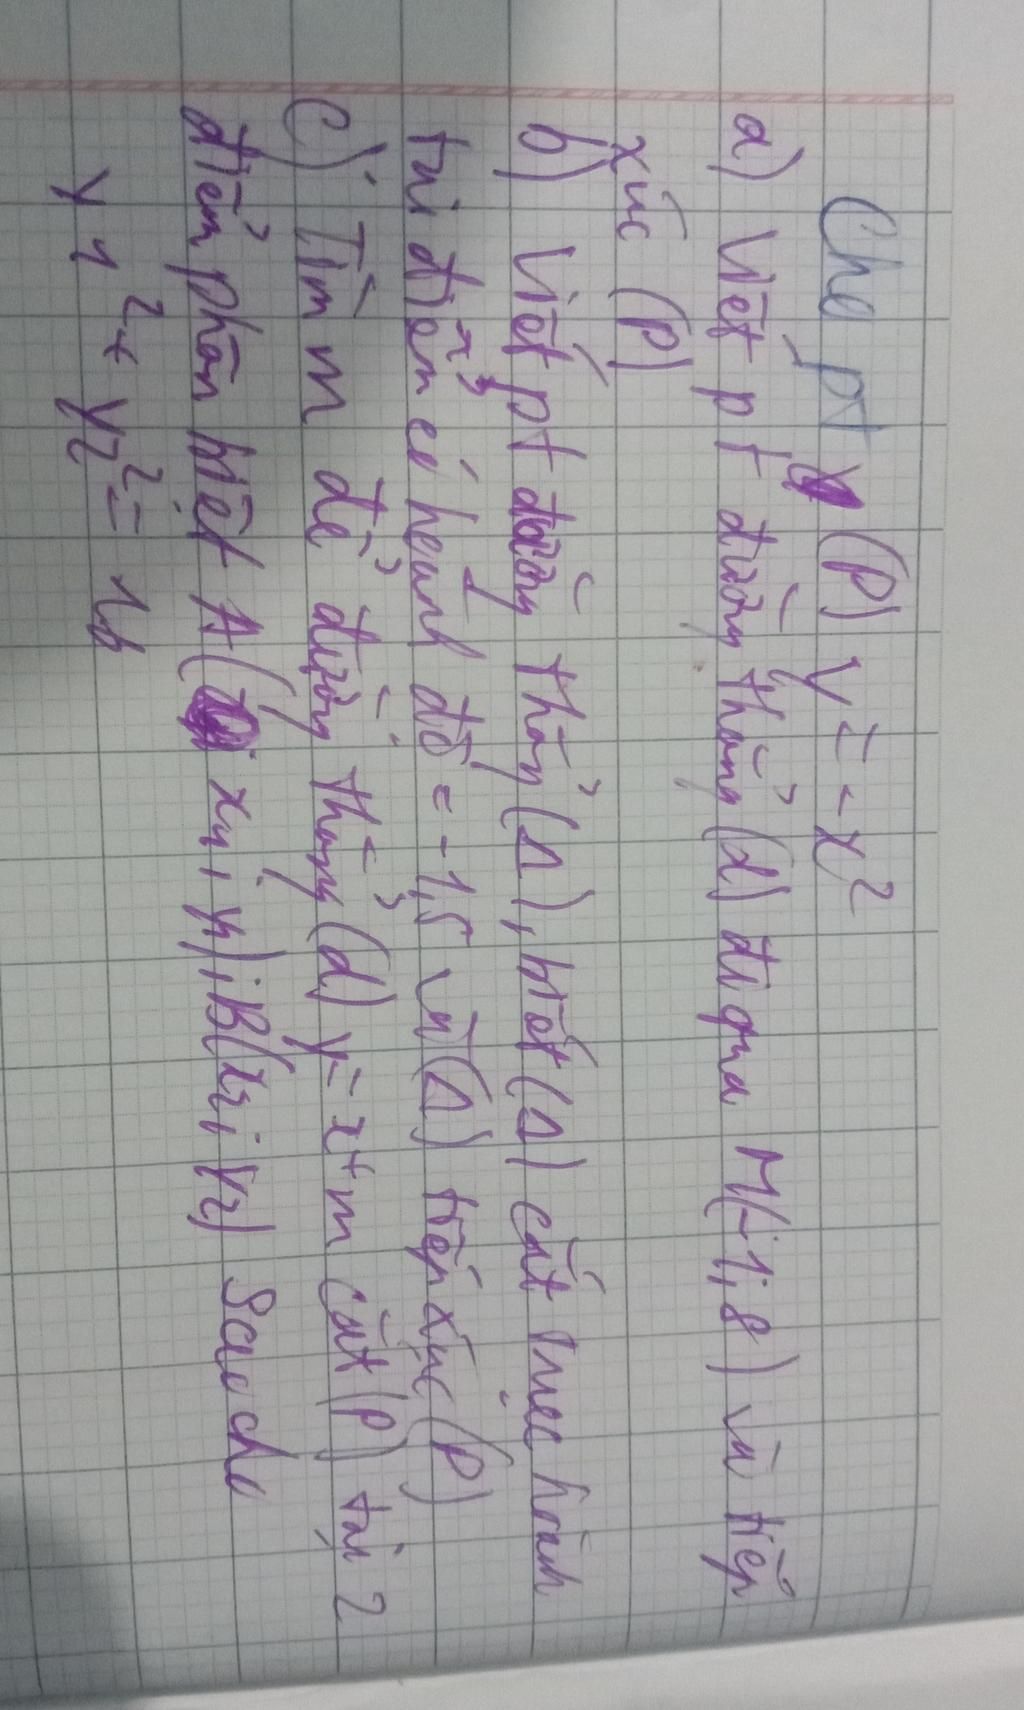 Cho pt (P) y = -x²
a) Viết pt đường thẳng (d) đi qua M(-1; 8) và tiếp
xúc (P)
b) Viết pt đường thẳng (Δ), biết (Δ) cắt trục hoành
tại điểm có hoành độ = -1,5 và (Δ) tiếp xúc (P)
c) Tìm m để đường thẳng (d) y = x + m cắt (P) tại 2
điểm phân biệt A( x₁; y₁); B(x₂; y₂) sao cho
y₁² + y₂² =